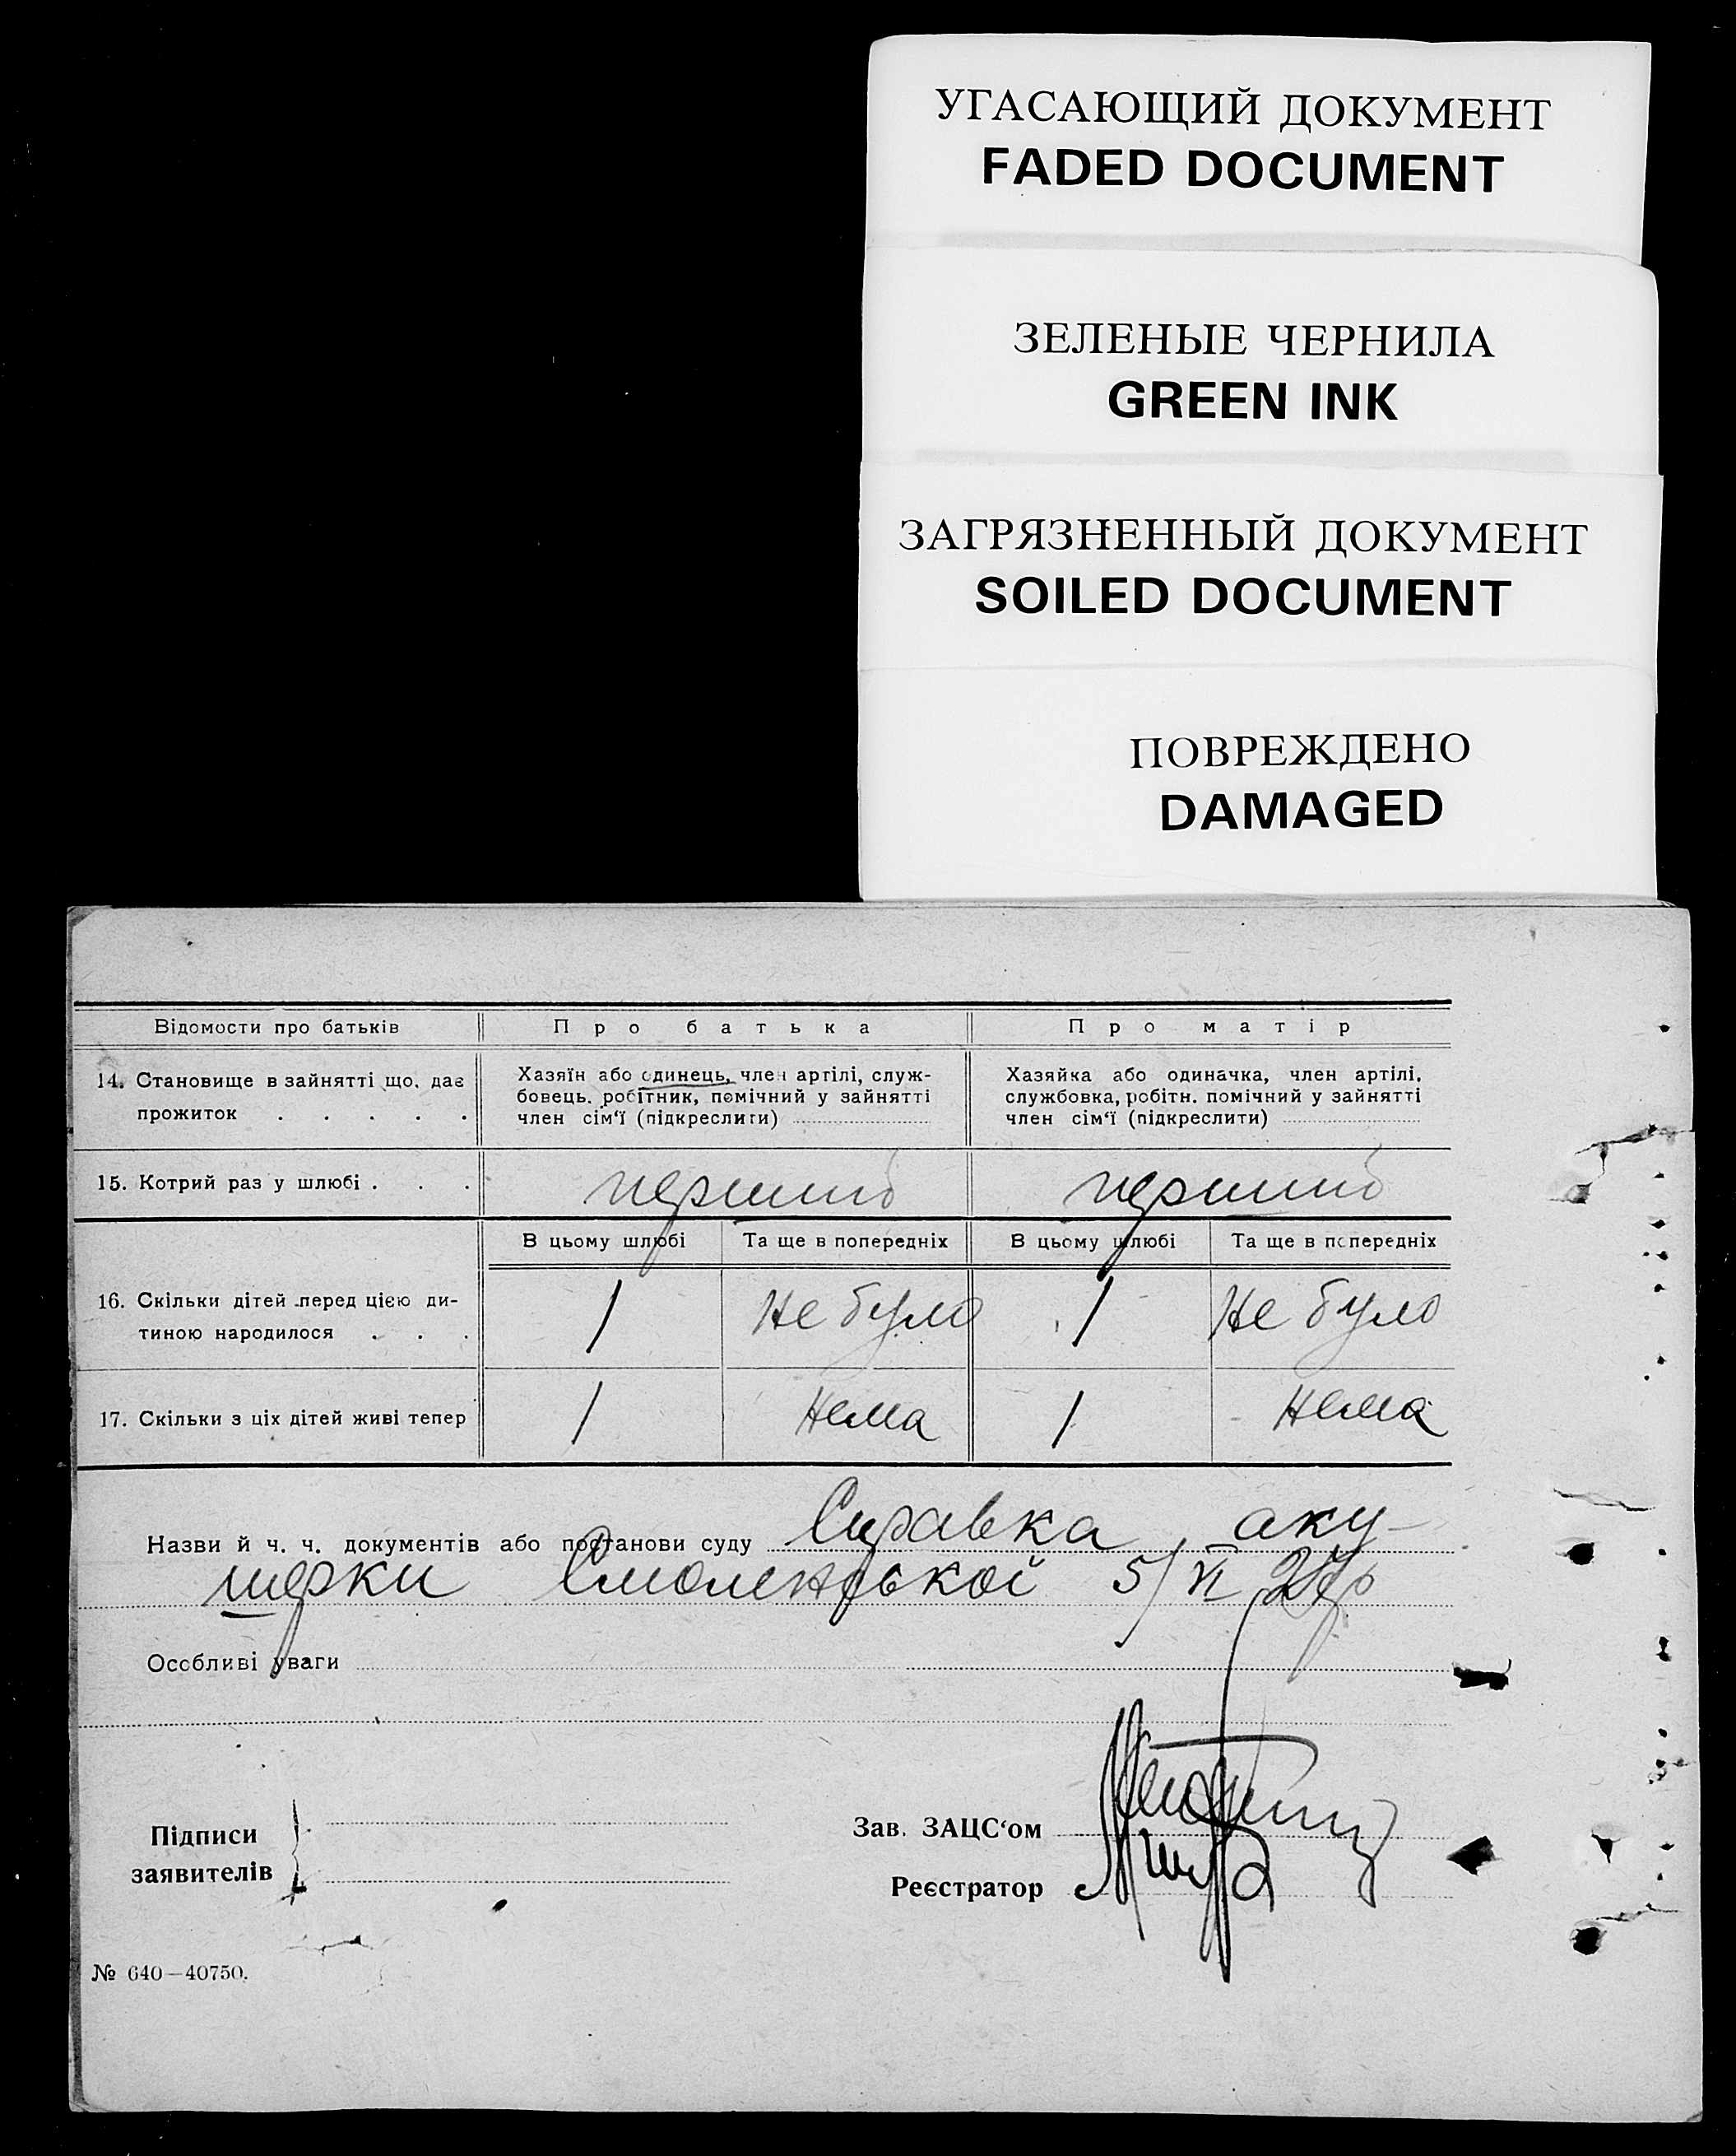 УГАСАЮЩИЙ ДОКУМЕНТ
FADED DOCUMENT
ЗЕЛЕНЫЕ ЧЕРНИЛА
GREEN INK
ЗАГРЯЗНЕННЫЙ ДОКУМЕНТ
SOILED DOCUMENT
ПОВРЕЖДЕНО
DAMAGED
Відомости про батьків Про батька Про матір
14. Становище в зайнятті що, дає прожиток . . . . .
Хазяїн або одинець, член артілі, служ-
бовець. робітник, помічний у зайнятті
член сім'ї (підкреслити)
Хазяйка або одиначка, член артілі,
службовка, робітн. помічний у зайнятті
член сім'ї (підкреслити)
15. Котрий раз у шлюбі . . . перший перший
В цьому шлюбі Та ще в попередніх В цьому шлюбі Та ще в попередніх
16. Скільки дітей перед цією ди-
тиною народилося . . . 1 Не було 1 Не було
17. Скільки з ціх дітей живі тепер 1 Нема 1 Нема
Назви й ч. ч. документів або постанови суду Справка аку-
шерки Смоленської 5/VI 27р
Особливі уваги
Підписи
заявителів
Зав. ЗАЦС'ом
Реєстратор
№ 640—40750.